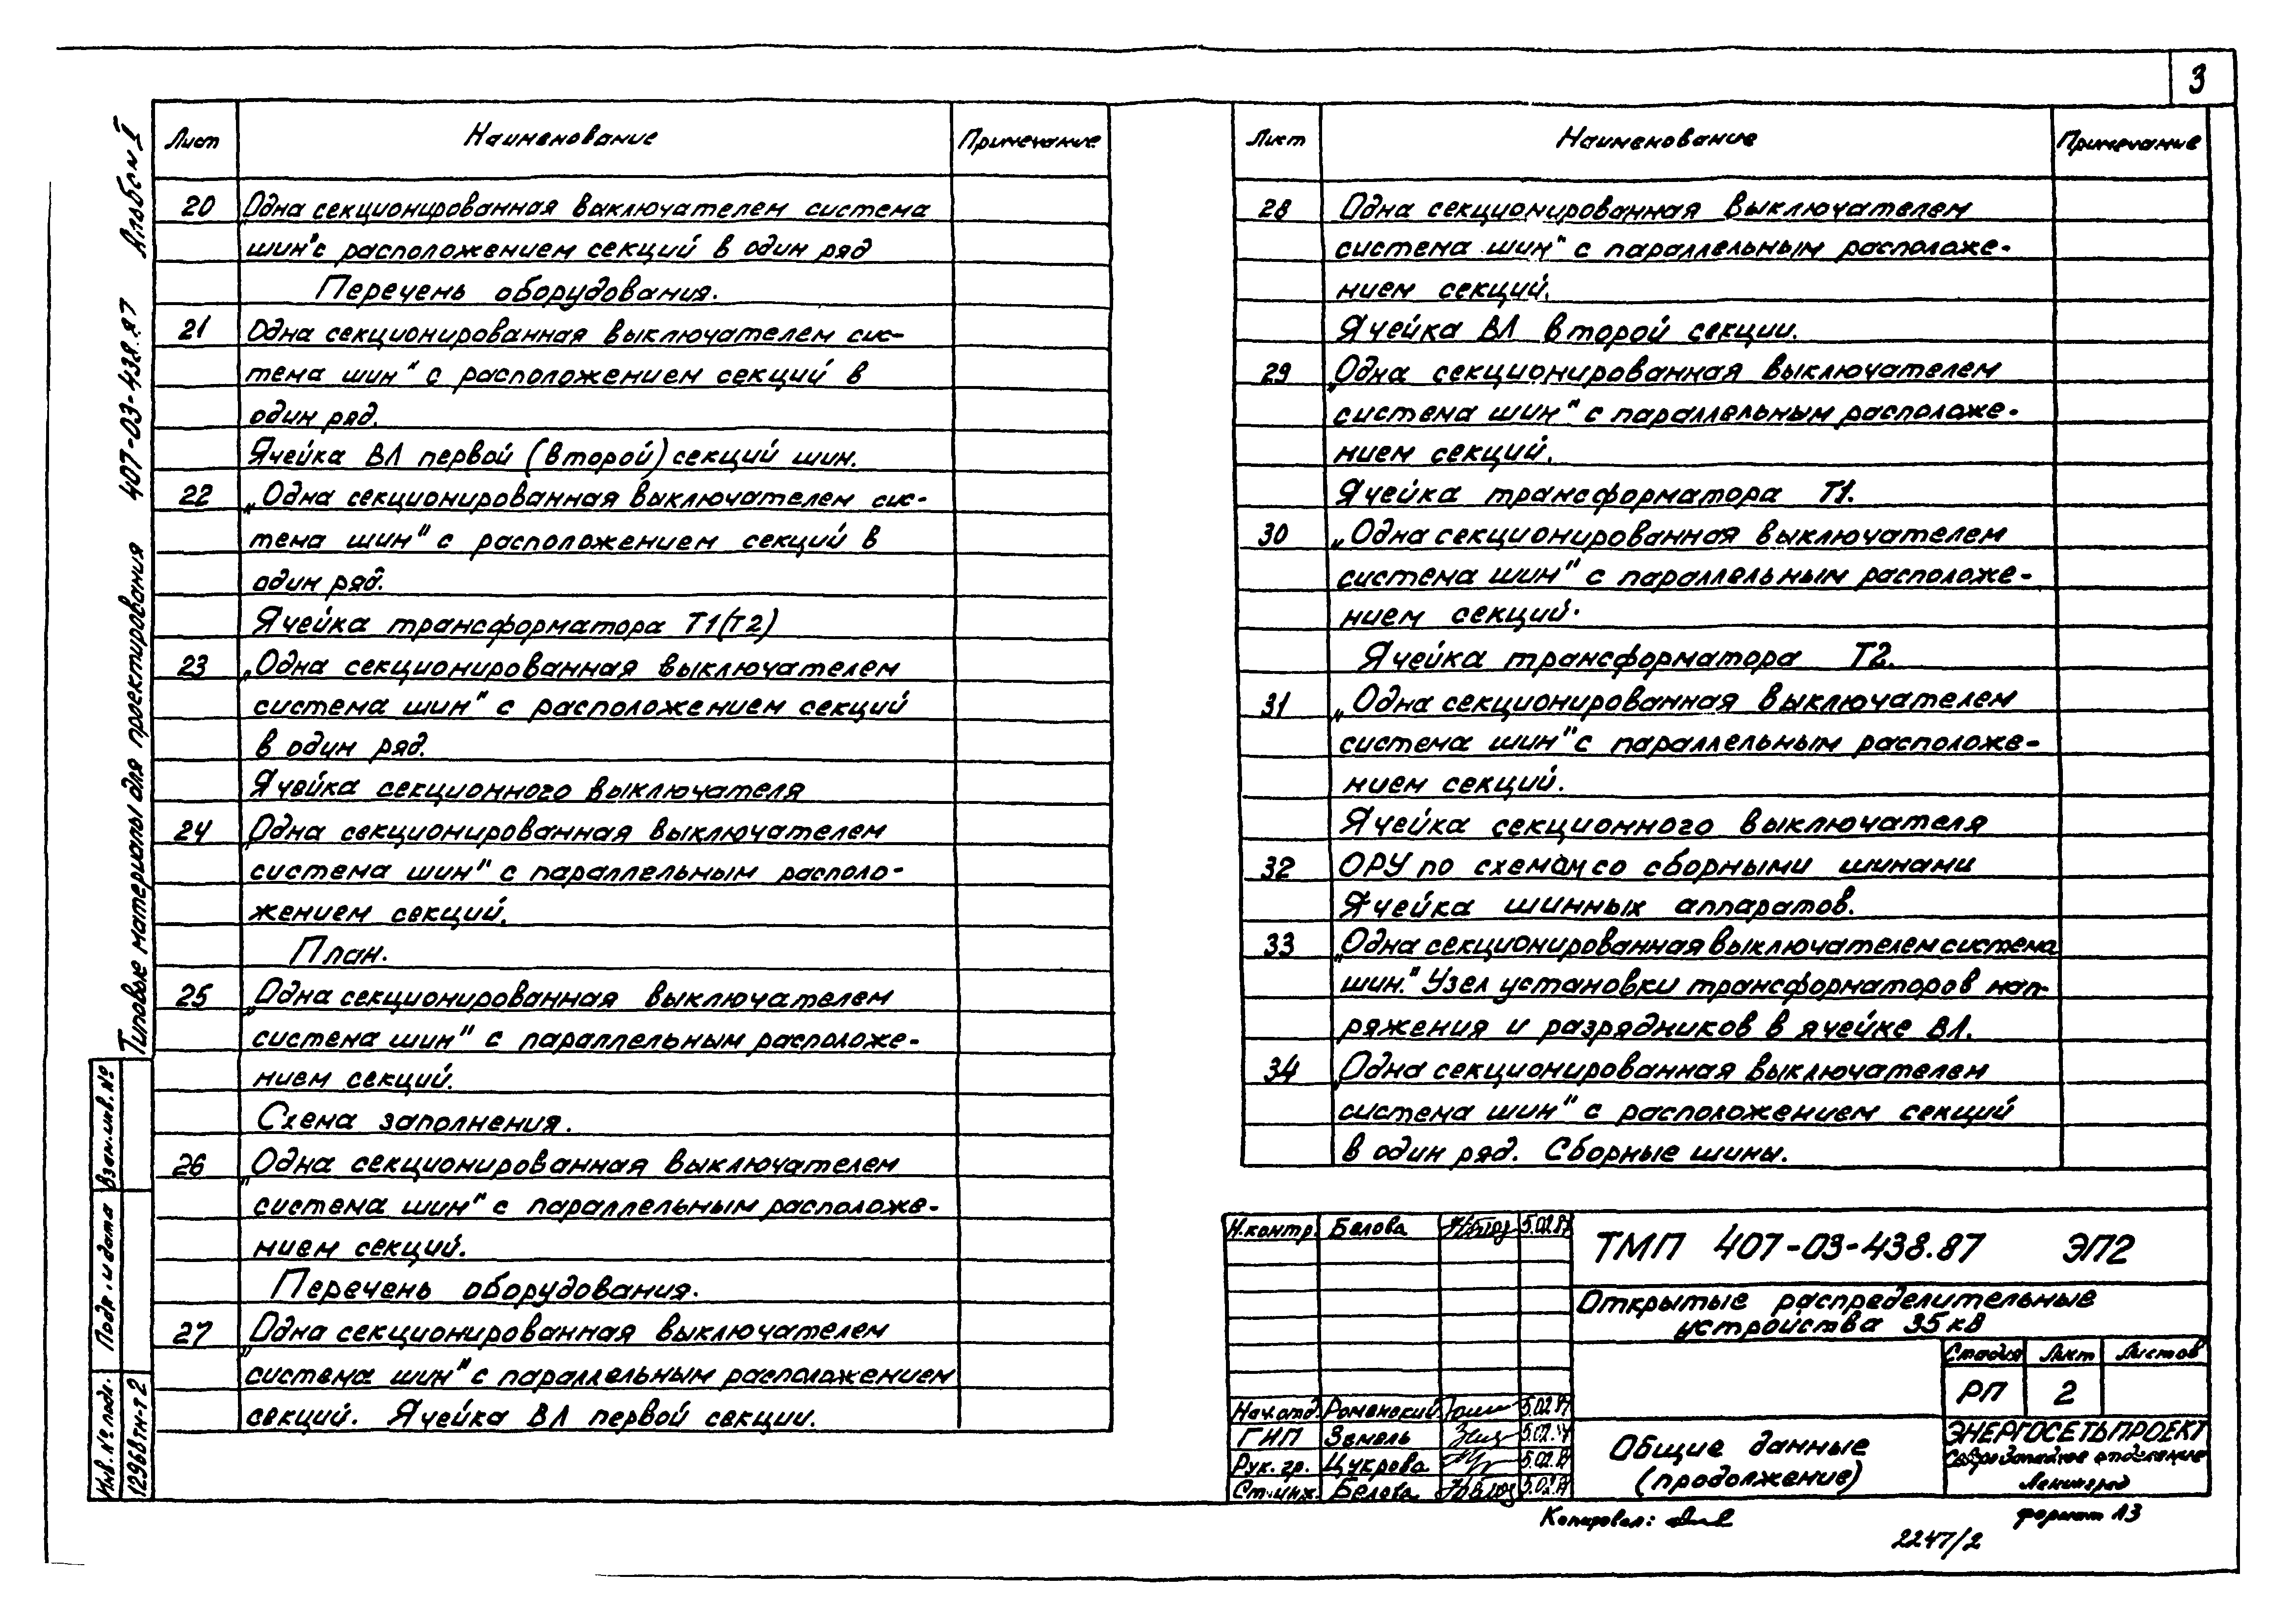 3
Альбом I
407-03-438.87
Типовые материалы для проектирования
Взам.инв.№
Подп. и дата
Инв.№ подл.
12968тм-т2
Лист Наименование Примечание
20 „Одна секционированная выключателем система
шин" с расположением секций в один ряд
Перечень оборудования.
21 Одна секционированная выключателем сис-
тема шин" с расположением секций в
один ряд.
Ячейка ВЛ первой (второй) секций шин.
22 „Одна секционированная выключателем сис-
тема шин" с расположением секций в
один ряд.
Ячейка трансформатора Т1(Т2)
23 „Одна секционированная выключателем
система шин" с расположением секций
в один ряд.
Ячейка секционного выключателя
24 „Одна секционированная выключателем
система шин" с параллельным располо-
жением секций.
План.
25 „Одна секционированная выключателем
система шин" с параллельным расположе-
нием секций.
Схема заполнения.
26 „Одна секционированная выключателем
система шин" с параллельным расположе-
нием секций.
Перечень оборудования.
27 „Одна секционированная выключателем
система шин" с параллельным расположением
секций. Ячейка ВЛ первой секции.
Лист Наименование Примечание
28 Одна секционированная выключателем
система шин" с параллельным расположе-
нием секций.
Ячейка ВЛ второй секции.
29 „Одна секционированная выключателем
система шин" с параллельным расположе-
нием секций.
Ячейка трансформатора Т1.
30 „Одна секционированная выключателем
система шин" с параллельным расположе-
нием секций.
Ячейка трансформатора Т2.
31 „Одна секционированная выключателем
система шин" с параллельным расположе-
нием секций.
Ячейка секционного выключателя
32 ОРУ по схемам со сборными шинами
Ячейка шинных аппаратов.
33 „Одна секционированная выключателем система
шин." Узел установки трансформаторов нап-
ряжения и разрядников в ячейке ВЛ.
34 „Одна секционированная выключателем
система шин" с расположением секций
в один ряд. Сборные шины.
Н.контр. Белова 5.02.87
ТМП 407-03-438.87 ЭП2
Открытые распределительные
устройства 35 кВ
Стадия Лист Листов
РП 2
Нач.отд. Роменский 5.02.87
ГИП Земель 5.02.87
Рук. гр. Цукрова 5.02.87
Ст.инж. Белова 5.02.87
Общие данные
(продолжение)
ЭНЕРГОСЕТЬПРОЕКТ
Северо-Западное отделение
Ленинград
Копировал:
формат А3
2247/2